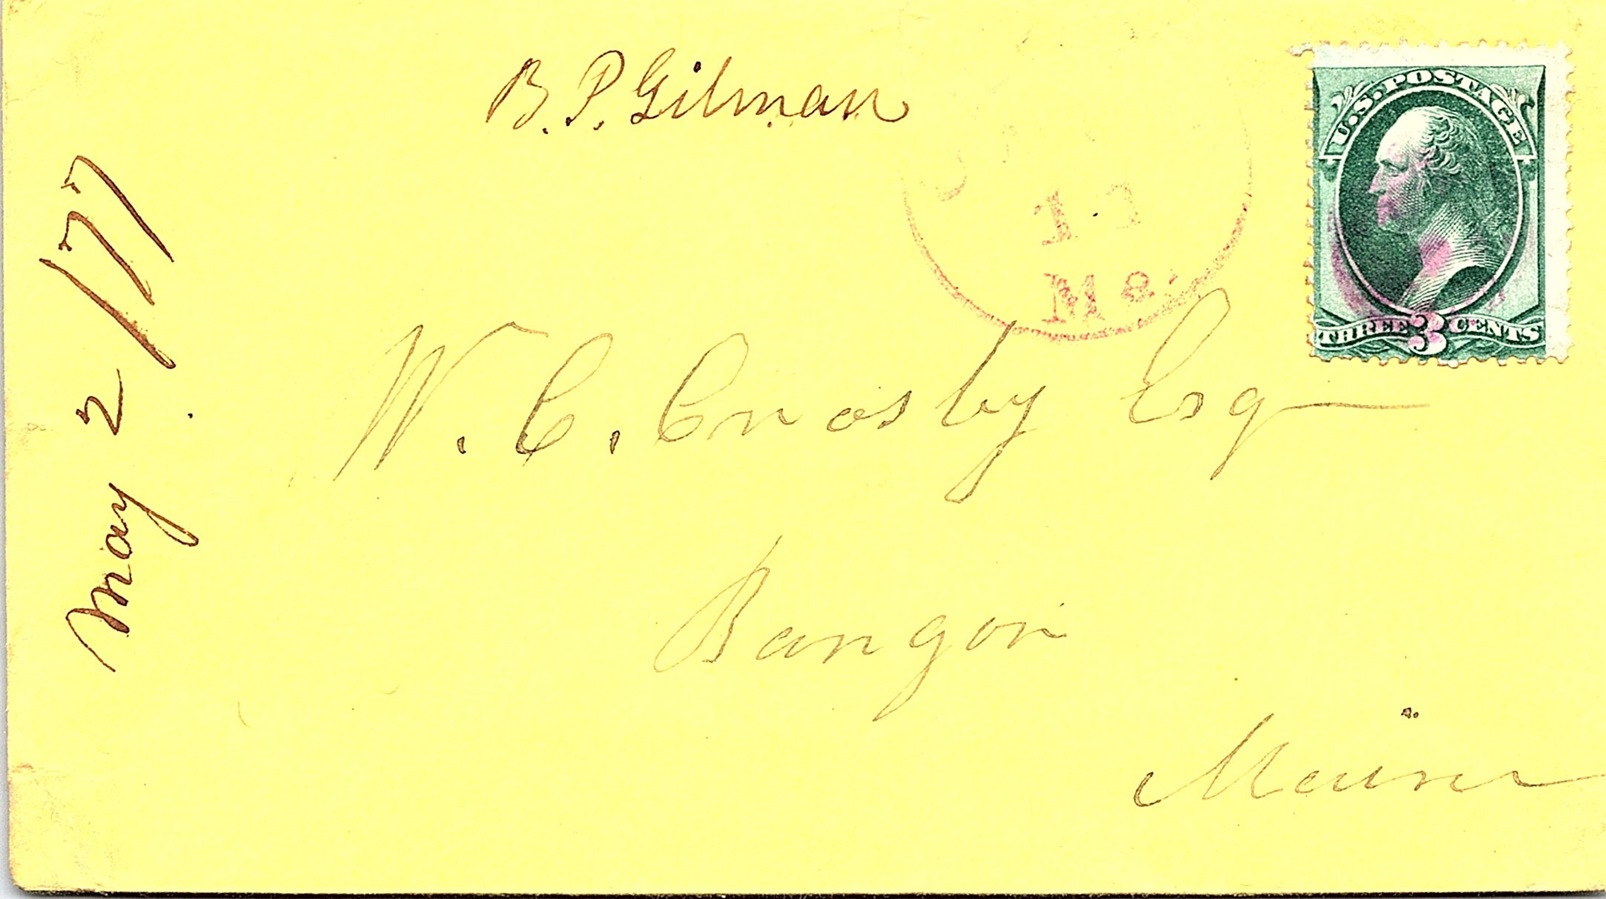 B. P. Gilman
U.S. POSTAGE
THREE 3 CENTS
Me.
W. C. Crosby Esq
Bangor
Maine
May 2/77